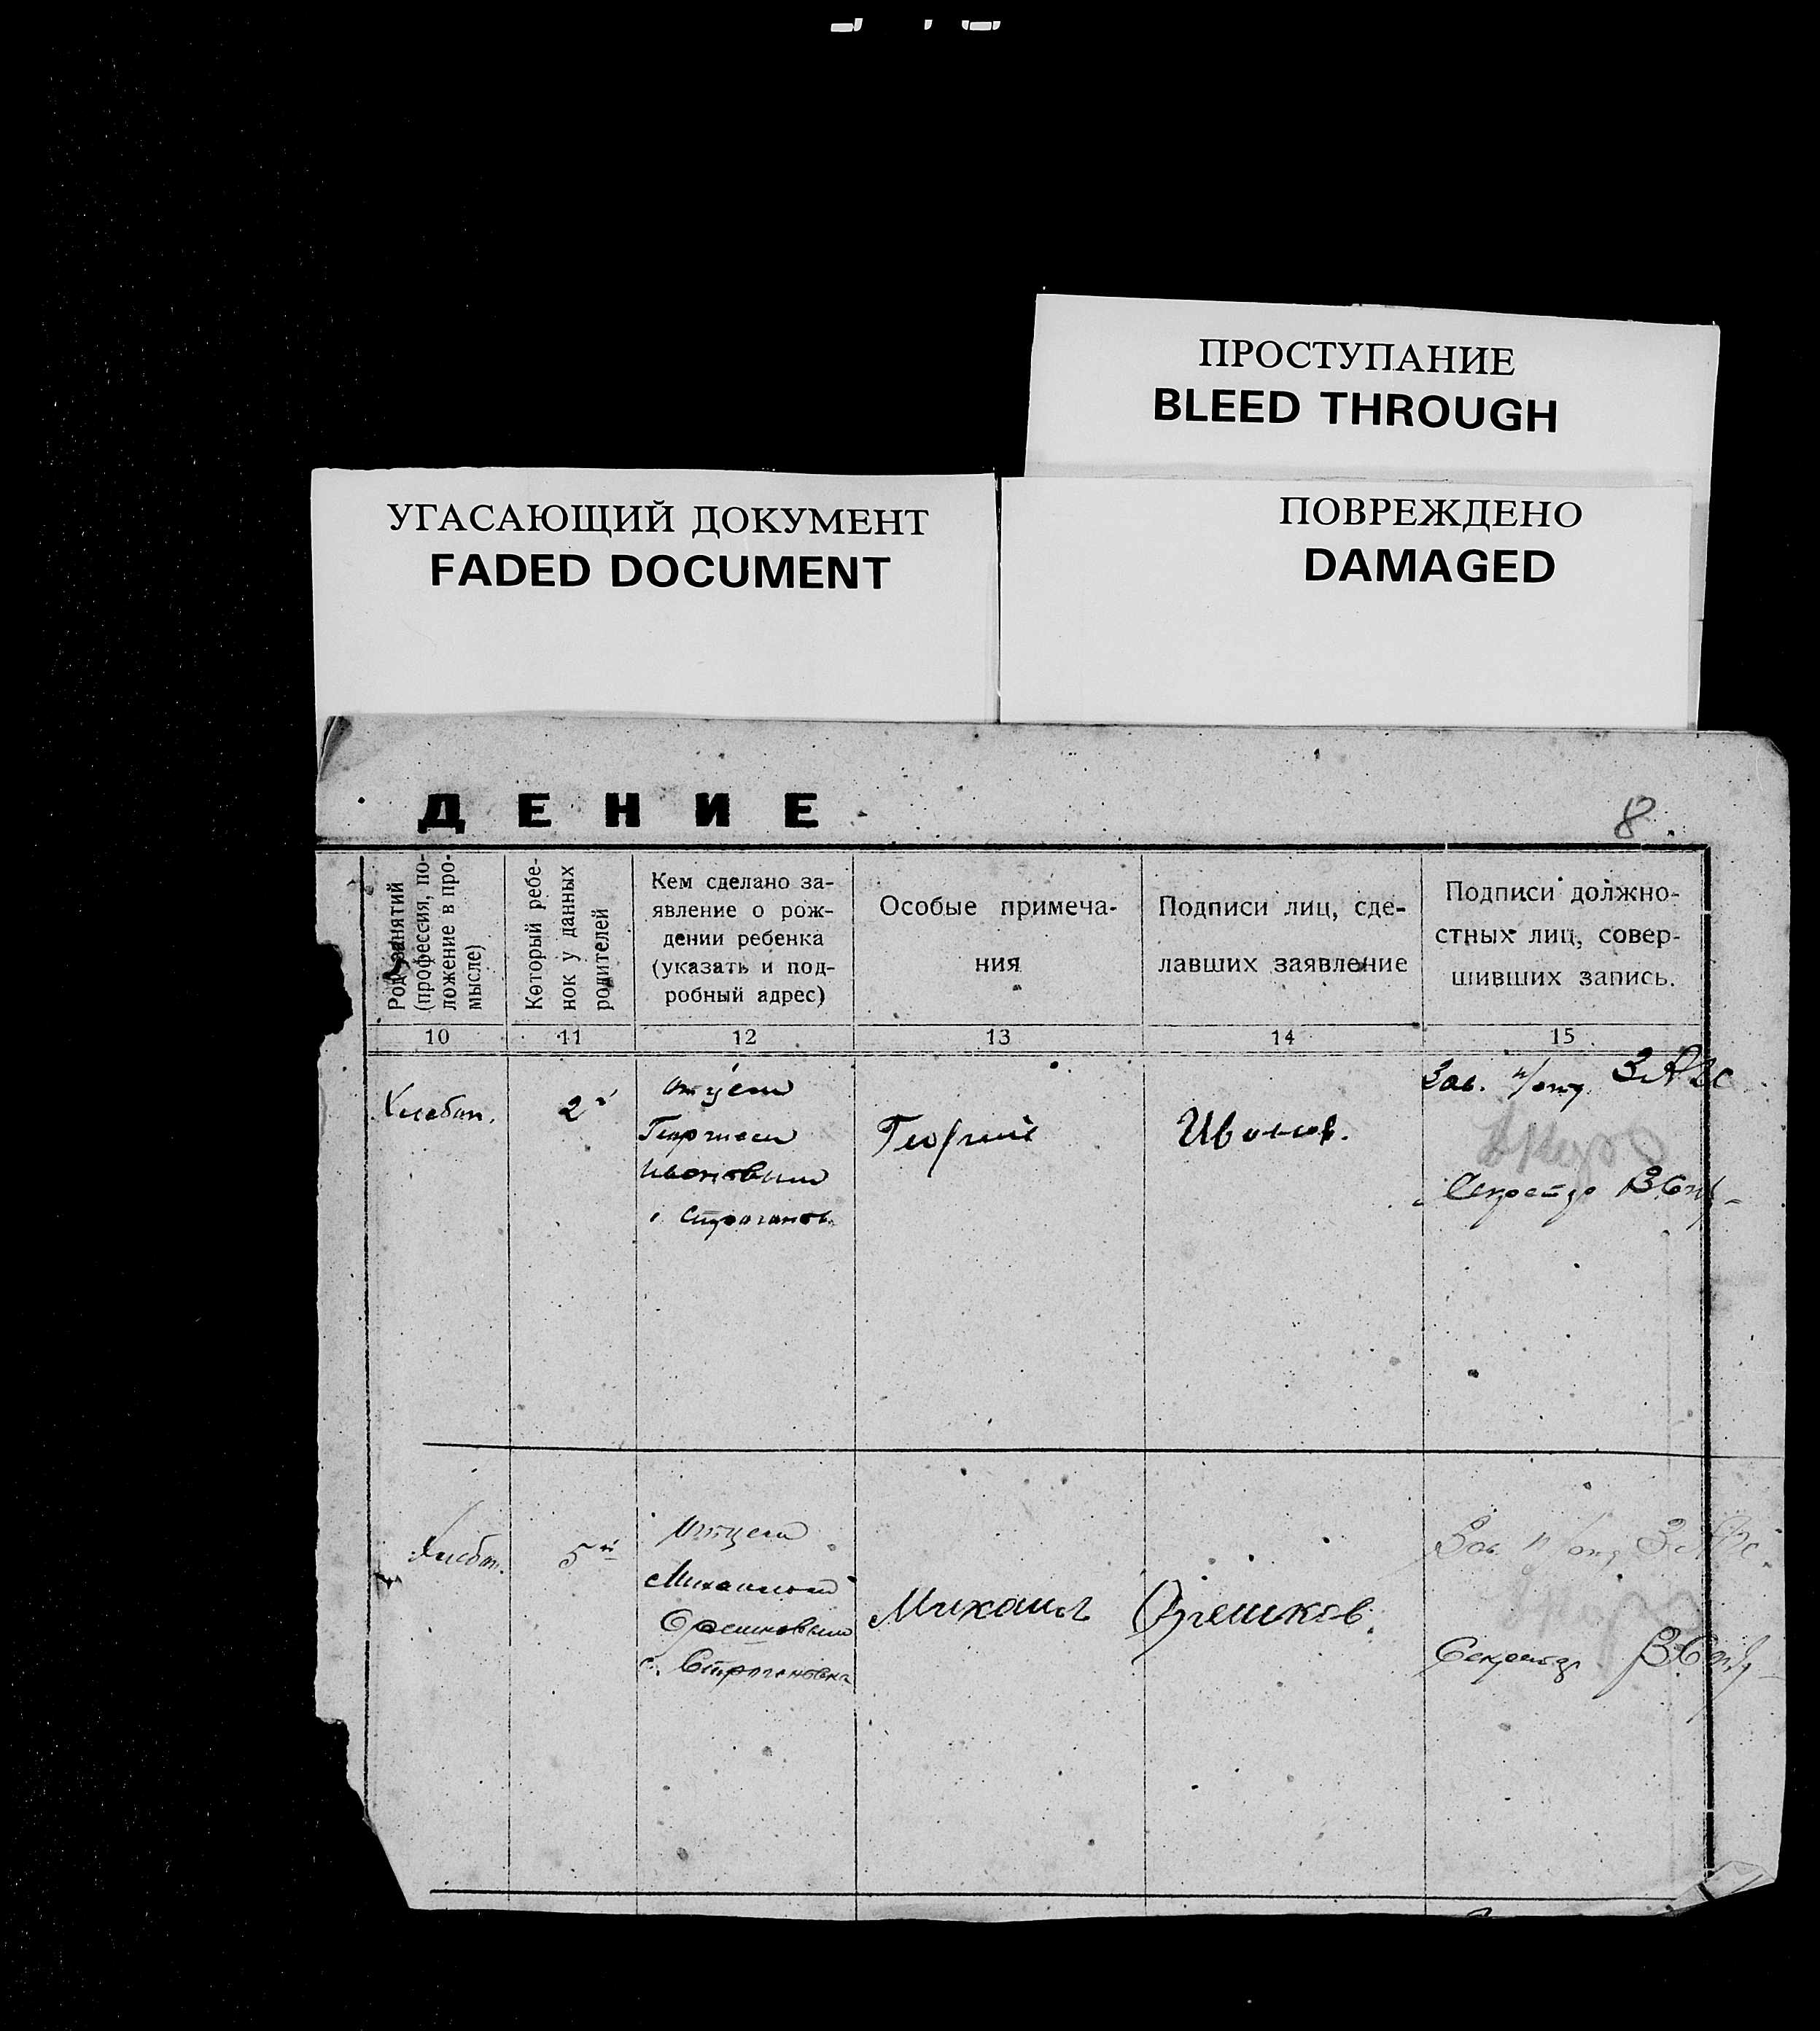 ПРОСТУПАНИЕ
BLEED THROUGH
УГАСАЮЩИЙ ДОКУМЕНТ
FADED DOCUMENT
ПОВРЕЖДЕНО
DAMAGED
ДЕНИЕ
8
Род занятий
(профессия, по-
ложение в про-
мысле)
Который ребе-
нок у данных
родителей
Кем сделано за-
явление о рож-
дении ребенка
(указать и под-
робный адрес)
Особые примеча-
ния
Подписи лиц, сде-
лавших заявление
Подписи должно-
стных лиц, совер-
шивших запись.
10
11
12
13
14
15
Хлебоп.
2й
отцем
Георгием
Ивановым
с Строганов.
Георгий
Иванов.
Зав. п/отд ЗАГС
Секретарь
Хлебоп.
5й
Отцем
Михаилом
Орешковым
с. Строгановка
Михаил Орешков.
Зав. п/отд ЗАГС.
Секретарь